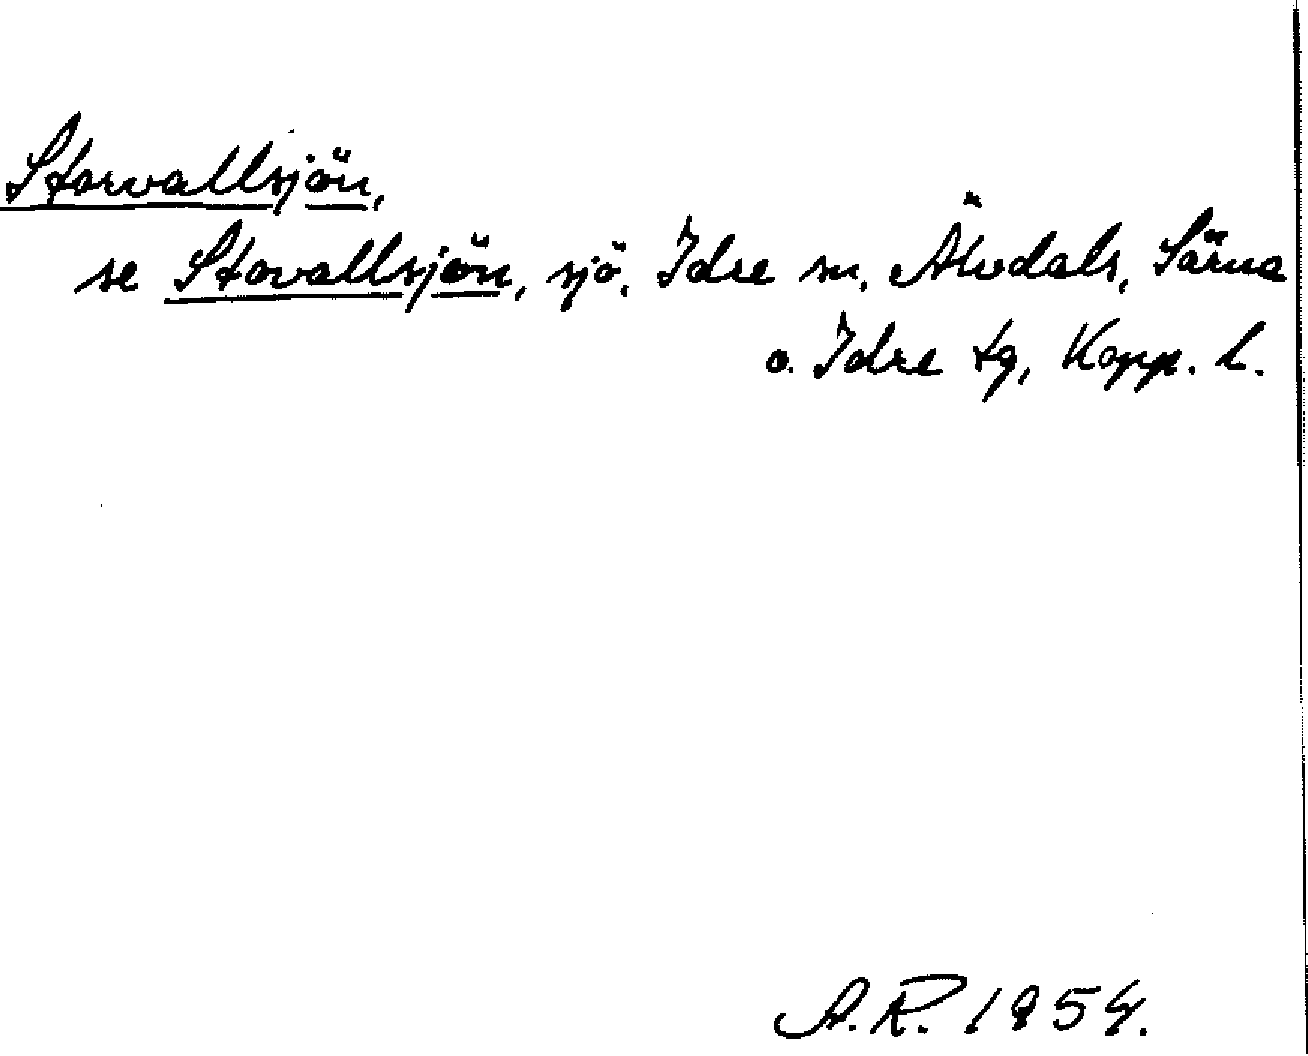 Storvallsjön,
se Stovallsjön, sjö, Idre sn, Älvdals, Särna
o. Idre tg, Kopp. l.
A.R. 1954.